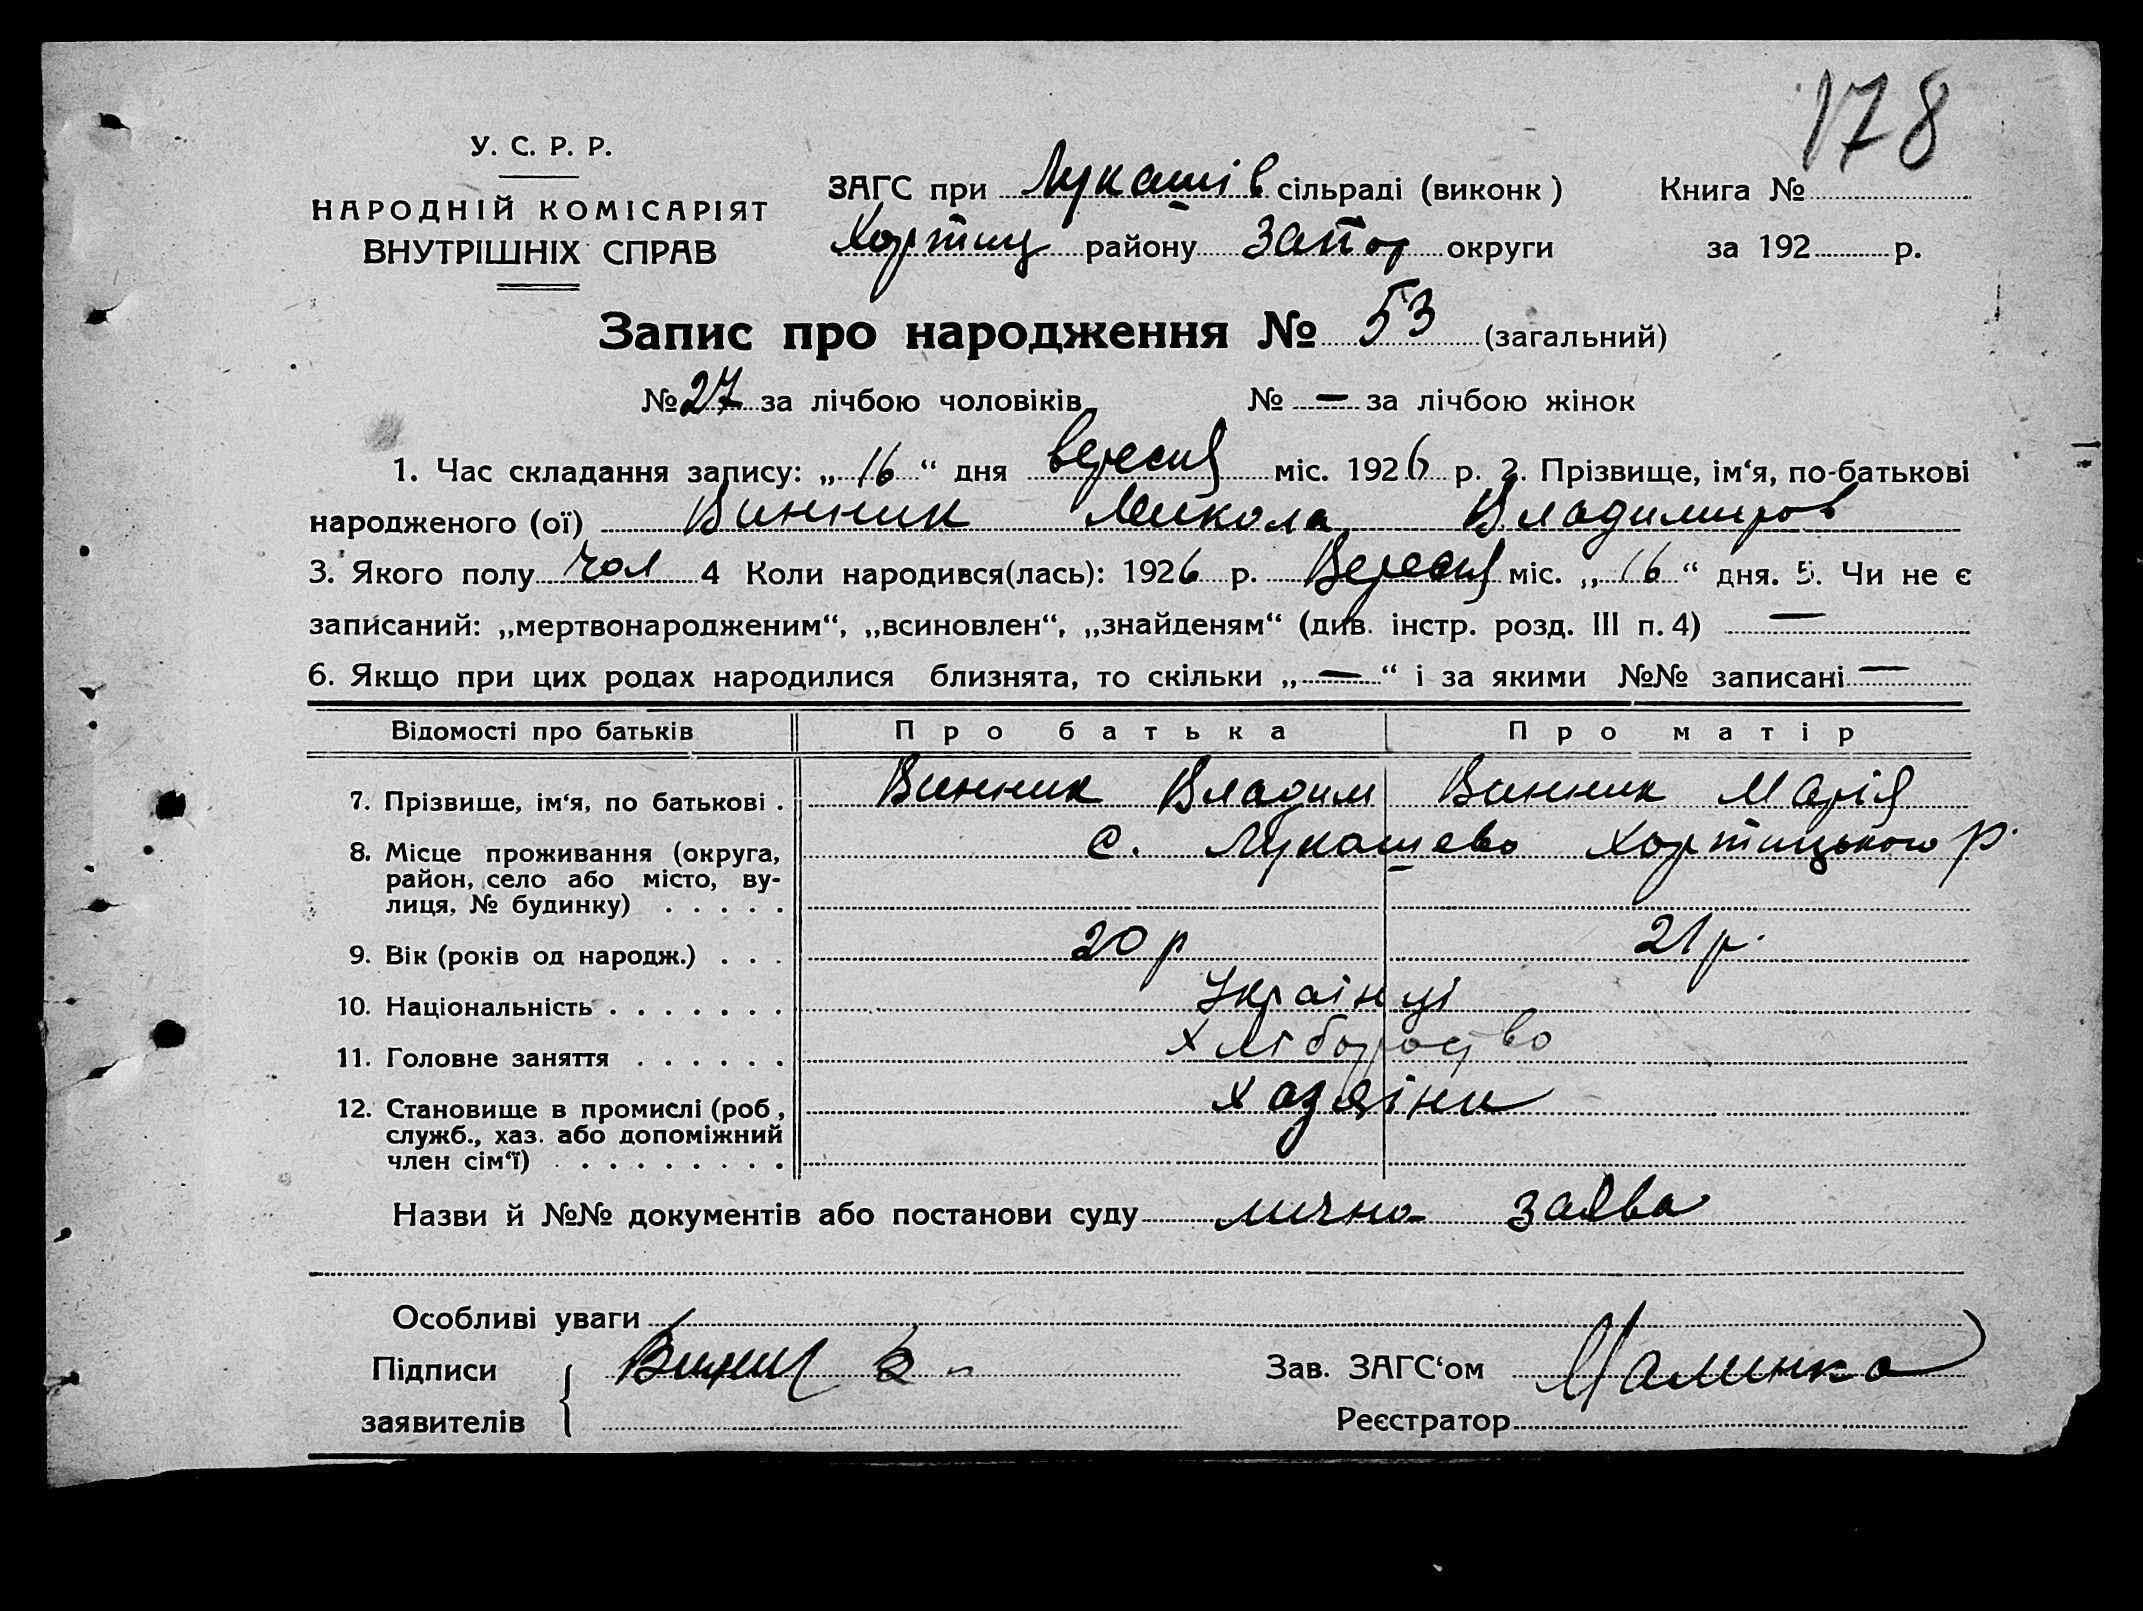 178
У. С. Р. Р.
НАРОДНІЙ КОМІСАРІЯТ
ВНУТРІШНІХ СПРАВ
ЗАГС при Лукашів сільраді (виконк) Книга №
Хортиц району Запор округи за 192 р.
Запис про народження № 53 (загальний)
№ 27 за лічбою чоловіків № — за лічбою жінок
1. Час складання запису: „16“ дня вересня міс. 1926 р. 2. Прізвище, ім‘я, по-батькові
народженого (ої) Винник Микола Владимиров
3. Якого полу чол 4 Коли народився(лась): 1926 р. Вересня міс. „16“ дня. 5. Чи не є
записаний: „мертвонародженим“, „всиновлен“, „знайденям“ (див. інстр. розд. III п. 4) —
6. Якщо при цих родах народилися близнята, то скільки „—“ і за якими №№ записані —
Відомості про батьків Про батька Про матір
7. Прізвище, ім‘я, по батькові . Винник Владим Винник Марія
8. Місце проживання (округа, с. Лукашево Хортицького р.
район, село або місто, ву-
лиця, № будинку) . . . . .
9. Вік (років од народж.) . . . 20 р 21 р.
10. Національність . . . . . . . Українці
11. Головне заняття . . . . . . Хліборобство
12. Становище в промислі (роб , хазяіни
служб., хаз. або допоміжний
член сім‘ї) . . . . . . . . .
Назви й №№ документів або постанови суду лична заява
Особливі уваги
Підписи Зав. ЗАГС‘ом Малинка
заявителів Реєстратор